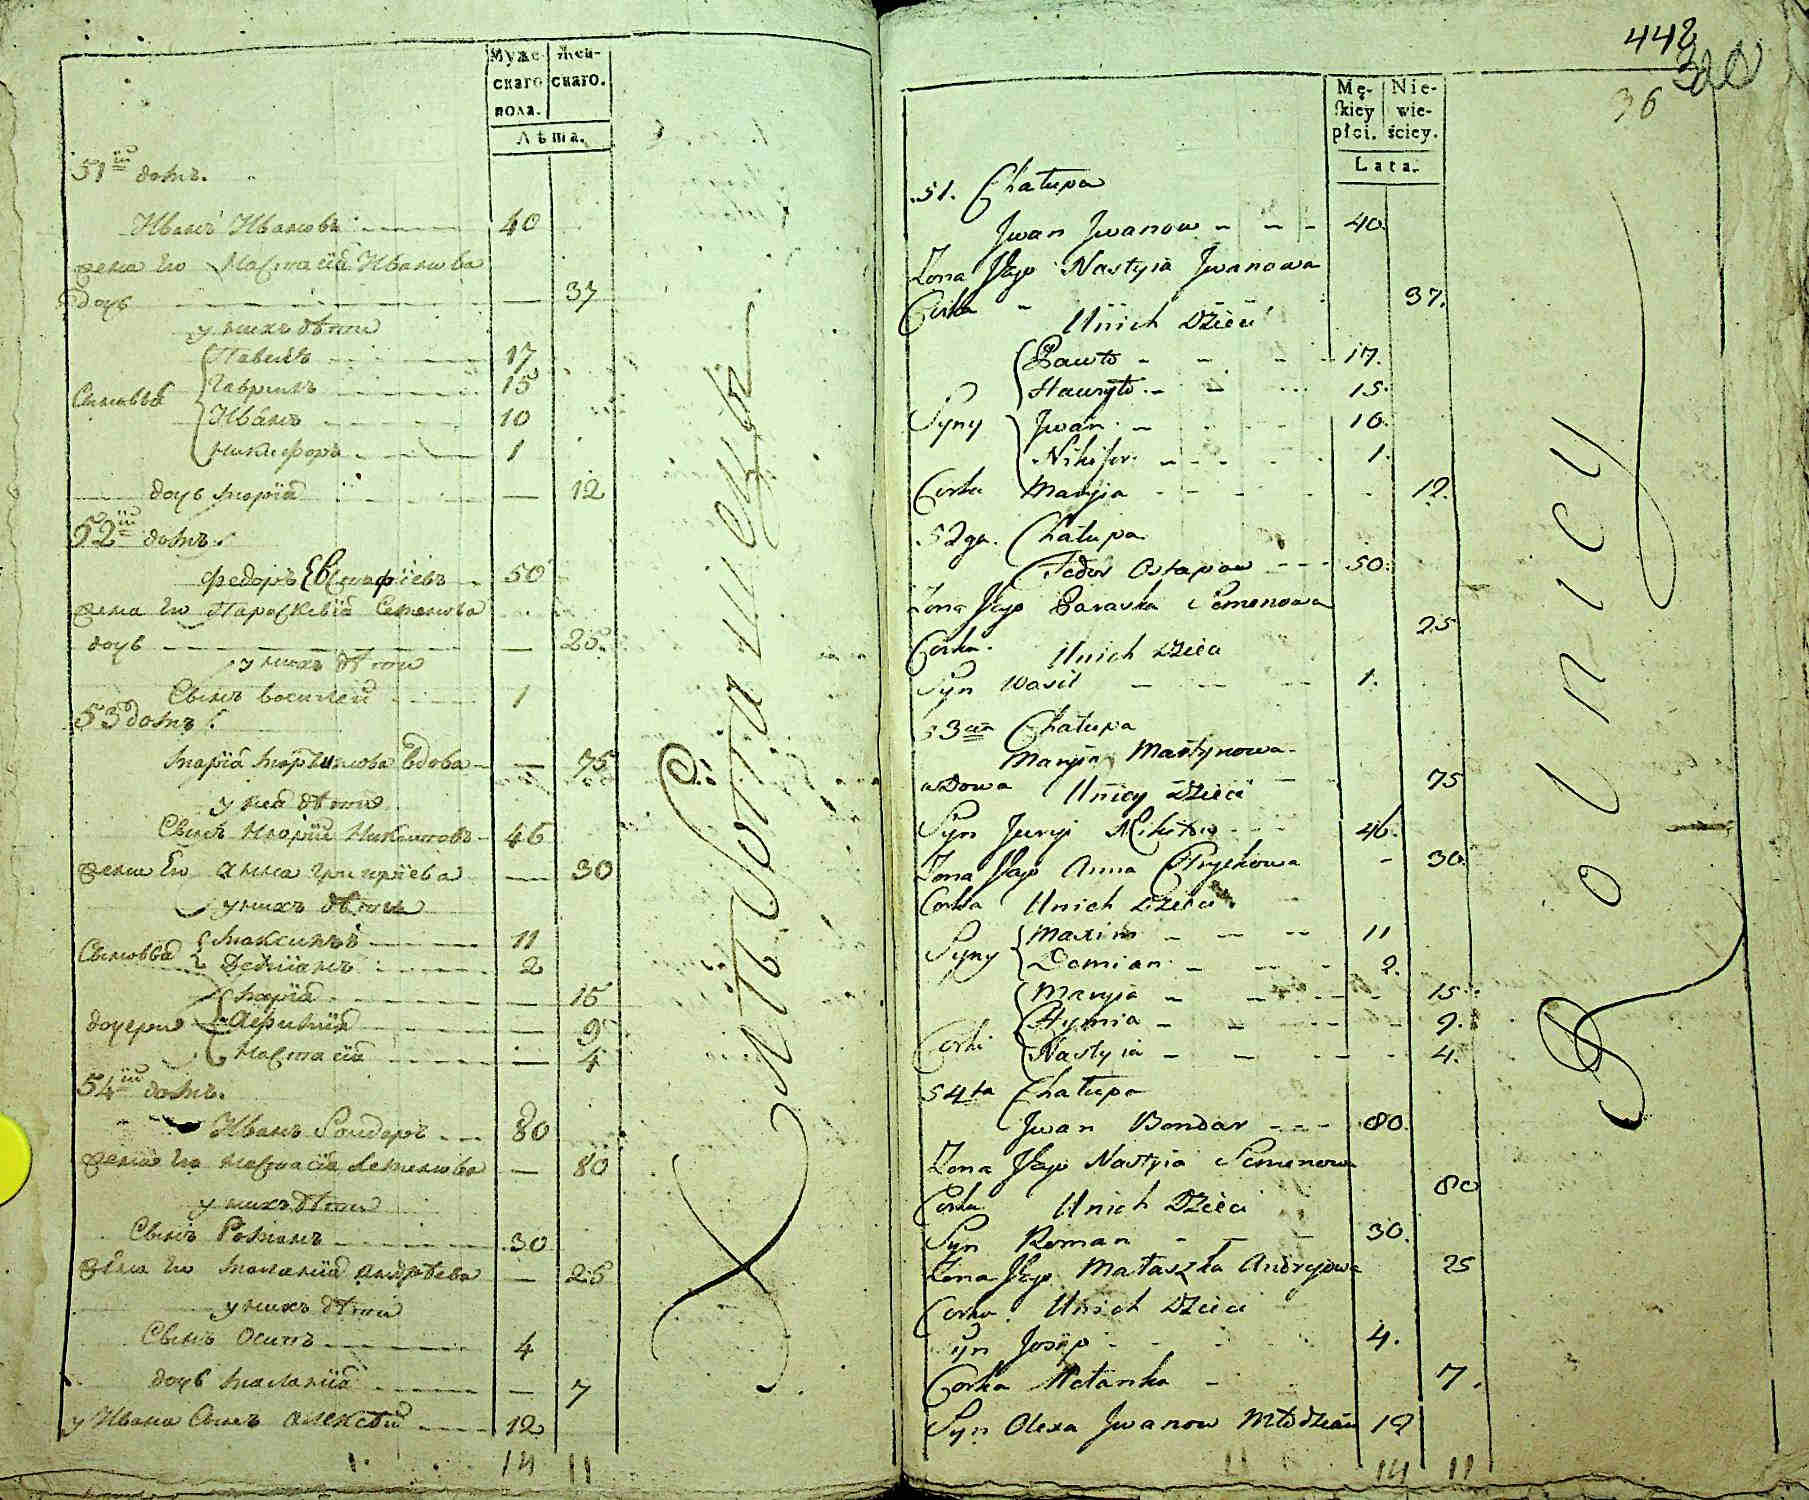 Муже- Жен-
скаго скаго.
пола.
Лѣта.
51й домъ.
Иванъ Ивановъ 40
жена Его Настасія Иванова
дочь — 37
у нихъ дѣти
Павелъ 17
Гаврилъ 15
Сыновья
Иванъ 10
Никифоръ 1
дочь Марія — 12
52й домъ.
Федоръ Евстафіевъ 50
жена Его Параскевія Семенова
дочь — 25.
у нихъ дѣти
Сынъ Василей 1
53 домъ.
Марія Мартинова Вдова — 75
у нея дѣти
Сынъ Юрій Никитовъ 46
жена Его Анна Григоріева — 30
у нихъ дѣти
Сыновья Максимъ 11
Деміанъ 2
Марія — 15
дочери Афимія — 9
Настасія — 4
54й домъ.
Иванъ Бондаръ 80
жена Его Настасія Семенова — 80
у нихъ дѣти
Сынъ Романъ 30
жена Его Маланія Андрѣева — 25
у нихъ дѣти
Сынъ Осипъ 4
дочь Маланія — 7
у Ивана Сынъ Алексѣй 12
14 11
442
36
Mę- Nie-
skiéy wie-
płci. ściey.
Lata.
51. Chałupa
Jwan Jwanow 40.
Żona Jego Nastyia Jwanowa
Corka 37.
Unich Dzieci
Pawło 17.
Hawryło 15.
Syny Jwan 10.
Nikifor 1.
Corka Maryia 12.
52ga. Chałupa
Fedor Ostapow 50.
Żona Jego Paraska Semenowa
Corka. 25
Unich Dzieci
Syn Wasil 1.
53cia Chałupa
Maryia Martynowa
wdowa 75
Uniey Dzieci
Syn Juryi Nikitow 46.
Żona Jego Anna Hryckowa - 30.
Corka Unich Dzieci
Syny Maxim 11
Domian 2.
Maryia 15.
Corki Hymia 9.
Nastyia 4.
54ta Chałupa
Jwan Bondar 80.
Żona Jego Nastyia Semenowa
Corka 80
Unich Dzieci
Syn Roman 30.
Żona Jego Małaszka Andryiowa 25
Corka Unich Dzieci
Syn Josyp 4.
Corka Mełanka 7.
Syn Olexa Jwanow Młodzian 12
14 11
Rolnicy